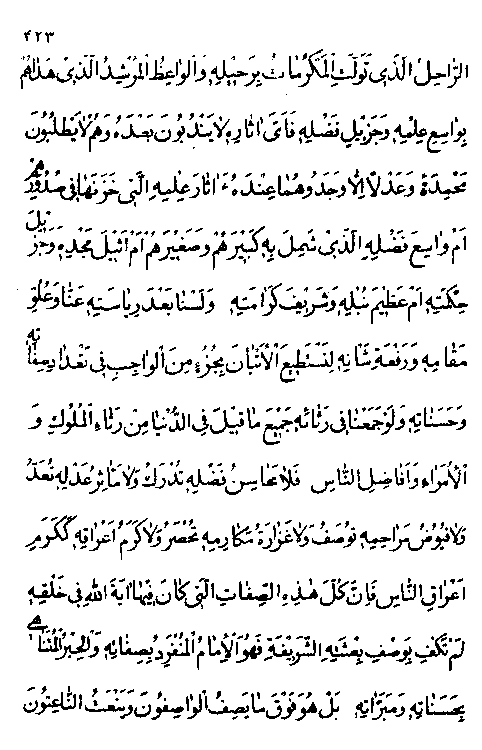 ٤٢٣
الرَّاحِلُ الَّذِي تَوَلَّتِ الْمَكْرُمَاتُ بِرَحِيلِهِ وَالْوَاعِظُ الْمُرْشِدُ الَّذِي هَدَاهُمْ
بِوَاسِعِ عِلْمِهِ وَجَزِيلِ فَضْلِهِ فَأَيَّ اثَارِهِ لَا يَنْدُبُونَ بَعْدَهُ وَهُمْ لَا يَطْلُبُونَ
مَحْمِدَةً وَعَدْلًا اِلَّا وَجَدُوهُمَا عِنْدَهُ ءَاثَارَ عِلْمِهِ الَّتِي خَزَنَهَا فِي صُدُورِهِمْ
اَمْ وَاسِعَ فَضْلِهِ الَّذِي شَمِلَ بِهِ كَبِيرَهُمْ وَصَغِيرَهُمْ اَمْ اَثِيلَ مَجْدِهِ وَجَزِيلَ
حِكْمَتِهِ اَمْ عَظِيمَ نُبْلِهِ وَشَرِيفَ كَرَامَتِهِ وَلَسْنَا بَعْدَ رِيَاسَتِهِ عَنَّا وَعُلُوِّ
مَقَامِهِ وَرِفْعَةِ شَانِهِ لِنَسْتَطِيعَ الْاَتْيَانَ بِجُزْءٍ مِنَ الْوَاجِبِ فِي تَعْدَادِ صِفَاتِهِ
وَحَسَنَاتِهِ وَلَوْ جَمَعْنَا فِي رَثَائِهِ جَمِيعَ مَا قِيلَ فِي الدُّنْيَا مِنْ رَثَاءِ الْمُلُوكِ وَ
الْاُمَرَاءِ وَاَفَاضِلِ النَّاسِ فَلَا مَحَاسِنُ فَضْلِهِ تُدْرَكُ وَلَا مَاٰثِرُ عَدْلِهِ تُعَدُّ
وَلَا فُيُوضُ مَرَاحِمِهِ تُوصَفُ وَلَا غَزَارَةُ مَكَارِمِهِ تُحْصَرُ وَلَا كَرَمُ اَعْرَاقِهِ كَكَرَمِ
اَعْرَاقِ النَّاسِ فَاِنَّ كُلَّ هٰذِهِ الصِّفَاتِ الَّتِي كَانَ فِيهَا اٰيَةَ اللهِ فِي خَلْقِهِ
لَمْ تَكْفِ بِوَصْفِ بِعْثَتِهِ الشَّرِيفَةِ فَهُوَ الْاِمَامُ الْمُنْفَرِدُ بِصِفَاتِهِ وَالْحِبْرُ الْمُتَنَاهِي
بِحَسَنَاتِهِ وَمَبَرَّاتِهِ بَلْ هُوَ فَوْقَ مَا يَصِفُ الْوَاصِفُونَ وَيَنْعَتُ النَّاعِتُونَ